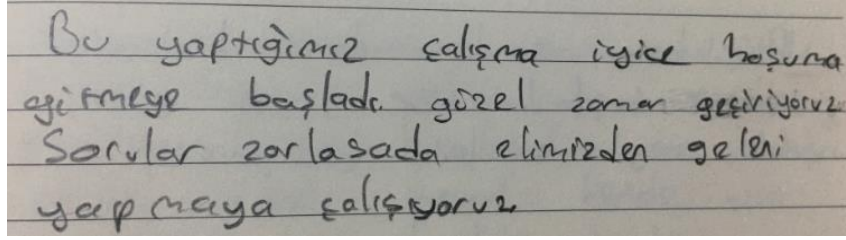 Bu yaptığımız çalışma iyice hoşuma
gitmeye başladı. güzel zaman geçiriyoruz
Sorular zorlasada elimizden geleni
yapmaya çalışıyoruz